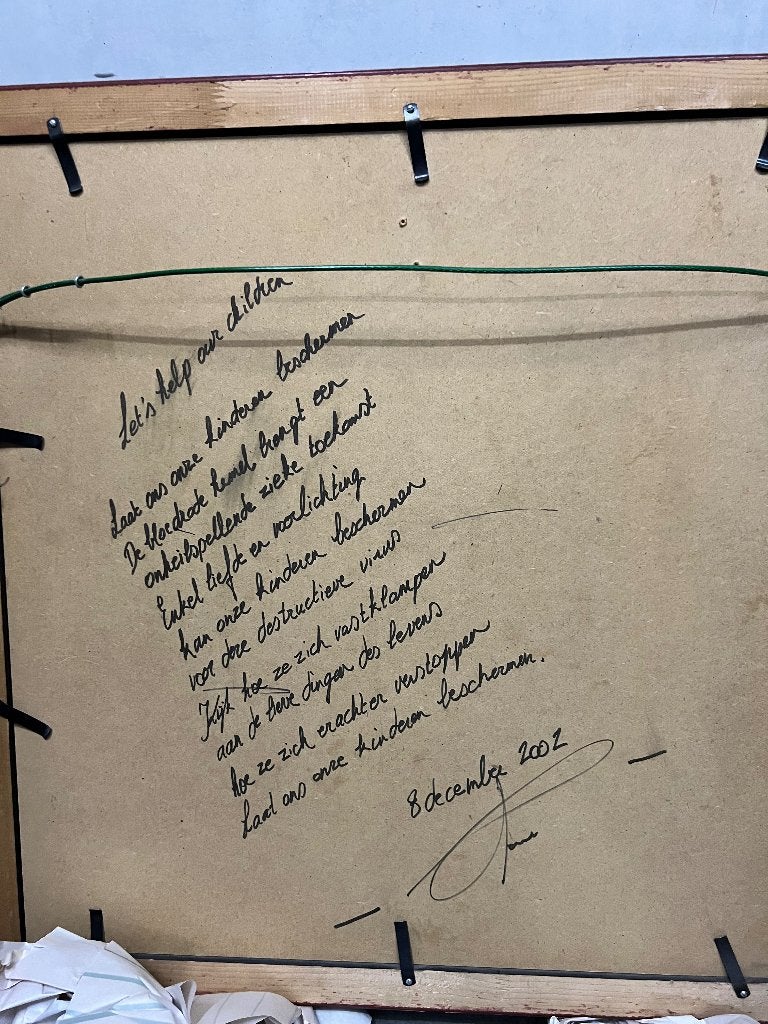 Let's help our children
Laat ons onze kinderen beschermen
De bloedrode hemel brengt een
onheilspellende zieke toekomst
Enkel liefde en voorlichting
kan onze kinderen beschermen
voor deze destructieve virus
Kijk hoe ze zich vastklampen
aan de lieve dingen des levens
hoe ze zich erachter verstoppen
Laat ons onze kinderen beschermen.
8 december 2002